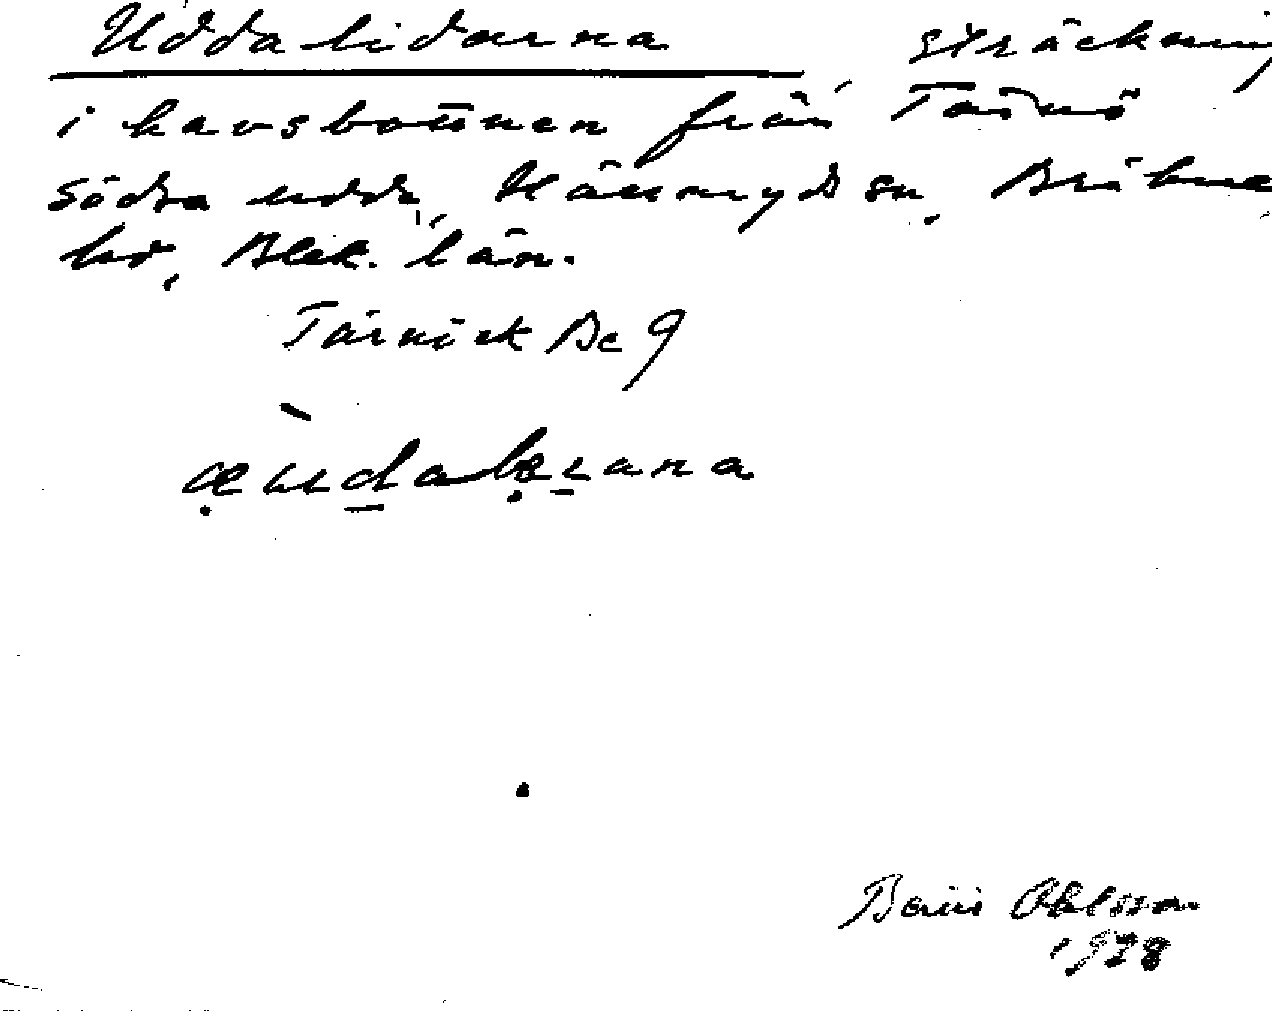 Uddalidarna sträckning
i havsbottnen från Tärnö
södra udd, Hällaryds sn, Bräkne
hd, Blek. län.
Tärnö ek Bc 9
Bertil Ohlsson
1928